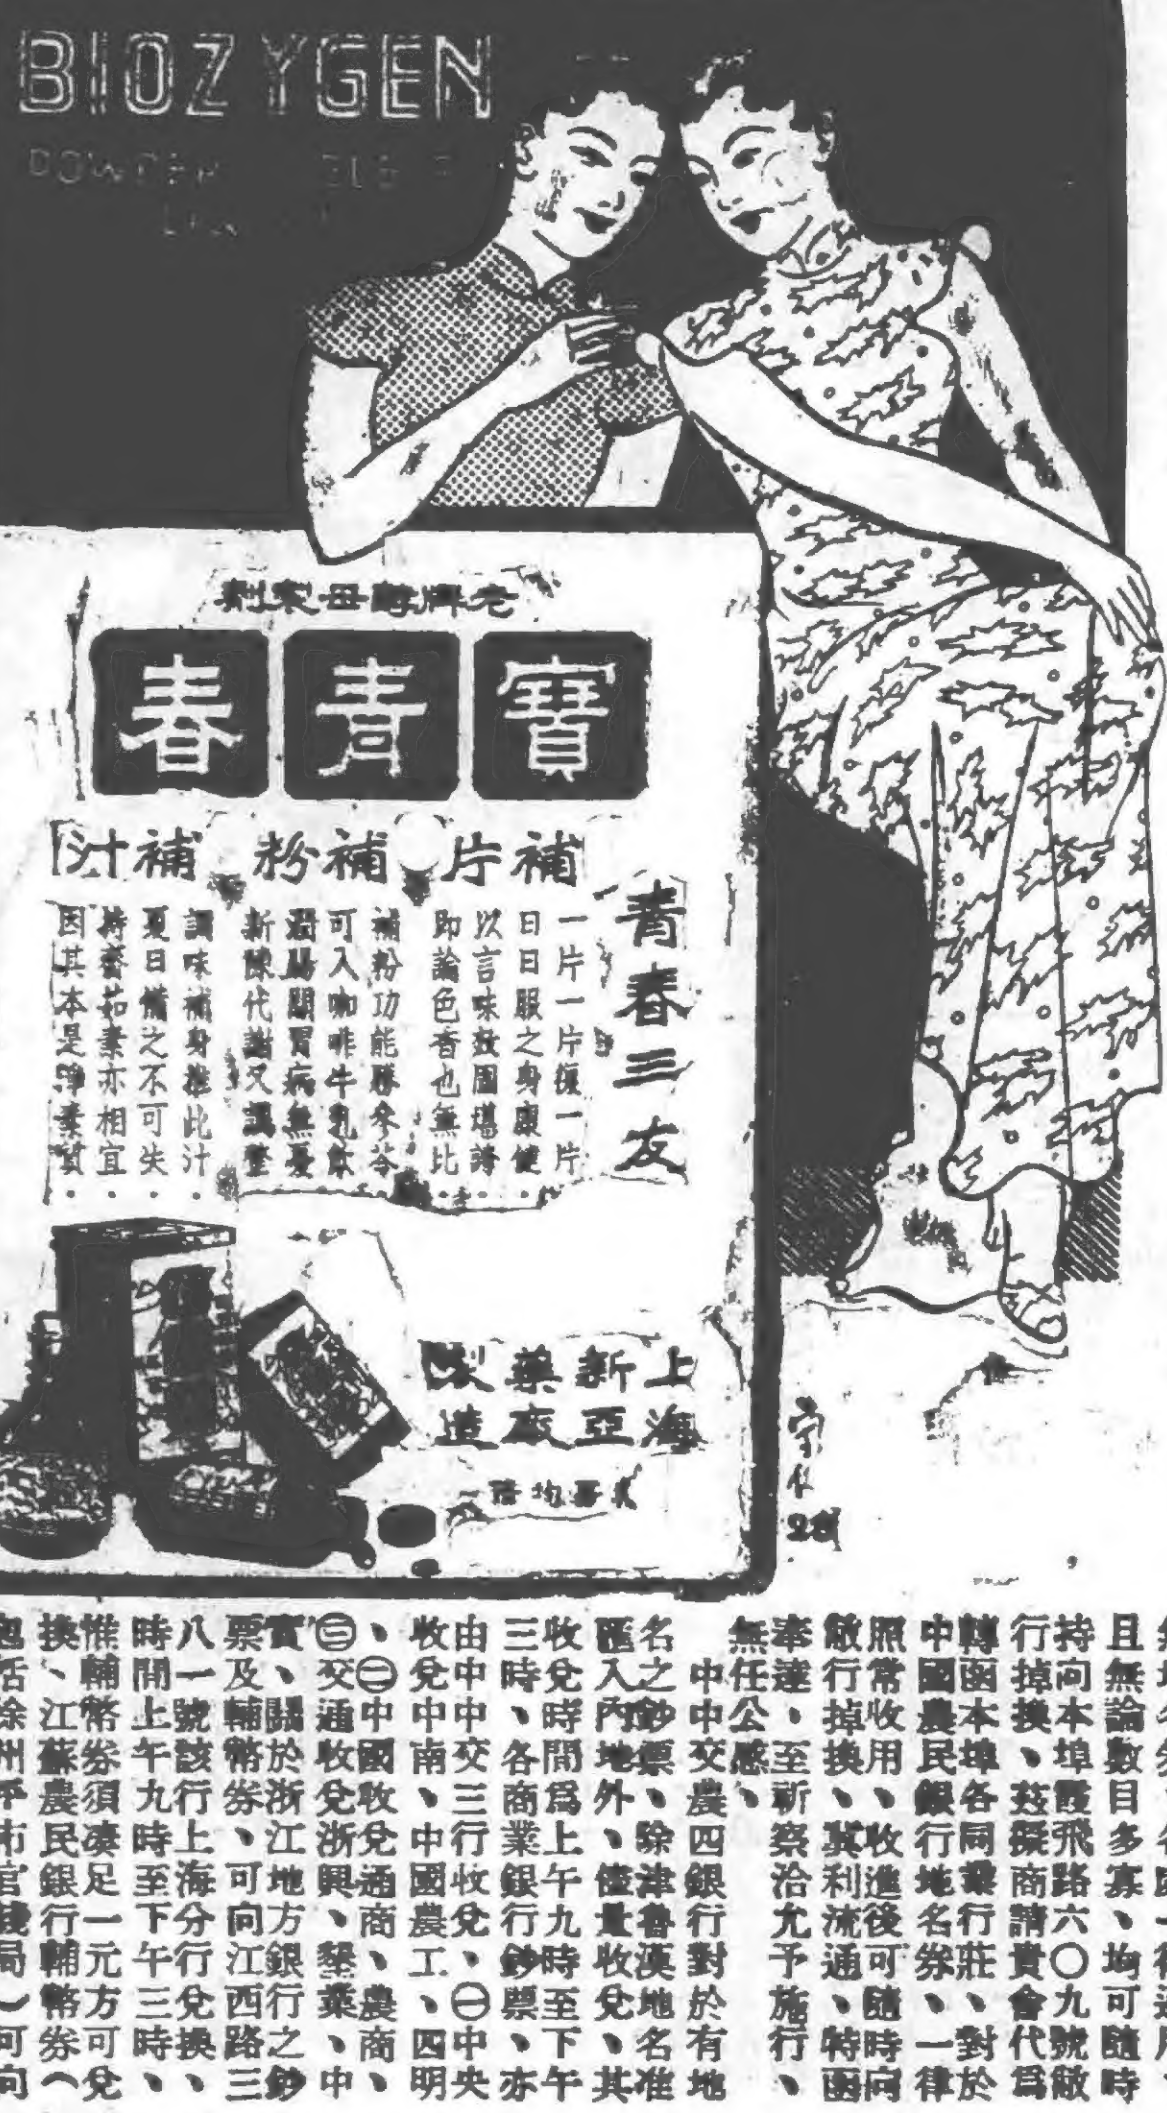 BIOZYGEN
POWDER
老牌酵母製劑
寶青春
青春三友
補片
一片一片復一片
日日服之身康健
以言味效固堪誇
即論色香也無比
補粉
補粉功能勝參苓
可入咖啡牛乳飲
潤腸開胃病無憂
新陳代謝又調整
補汁
調味補身推此汁
夏日備之不可失
持齋茹素亦相宜
因其本是淨素質
上海
新亞
藥廠
製造
且無論數目多寡、均可隨時
持向本埠霞飛路六〇九號敝
行掉換、茲擬商請貴會代爲
轉函本埠各同業行莊、對於
中國農民銀行地名券、一律
照常收用、收進後可隨時向
敝行掉換、冀利流通、特函
奉達、至祈察洽尤予施行、
無任公感、
中中交農四銀行對於有地
名之鈔票、除津魯漢地名准
匯入內地外、儘量收兌、其
收兌時間爲上午九時至下午
三時、各商業銀行鈔票、亦
由中中交三行收兌、㊀中央
收兌中南、中國農工、四明
、㊁中國收兌通商、農商、
㊂交通收兌浙興、墾業、中
實、關於浙江地方銀行之鈔
票及輔幣券、可向江西路三
八一號該行上海分行兌換、
時間上午九時至下午三時、
惟輔幣券須湊足一元方可兌
換、江蘇農民銀行輔幣券（
包括徐州平市官錢局）可向